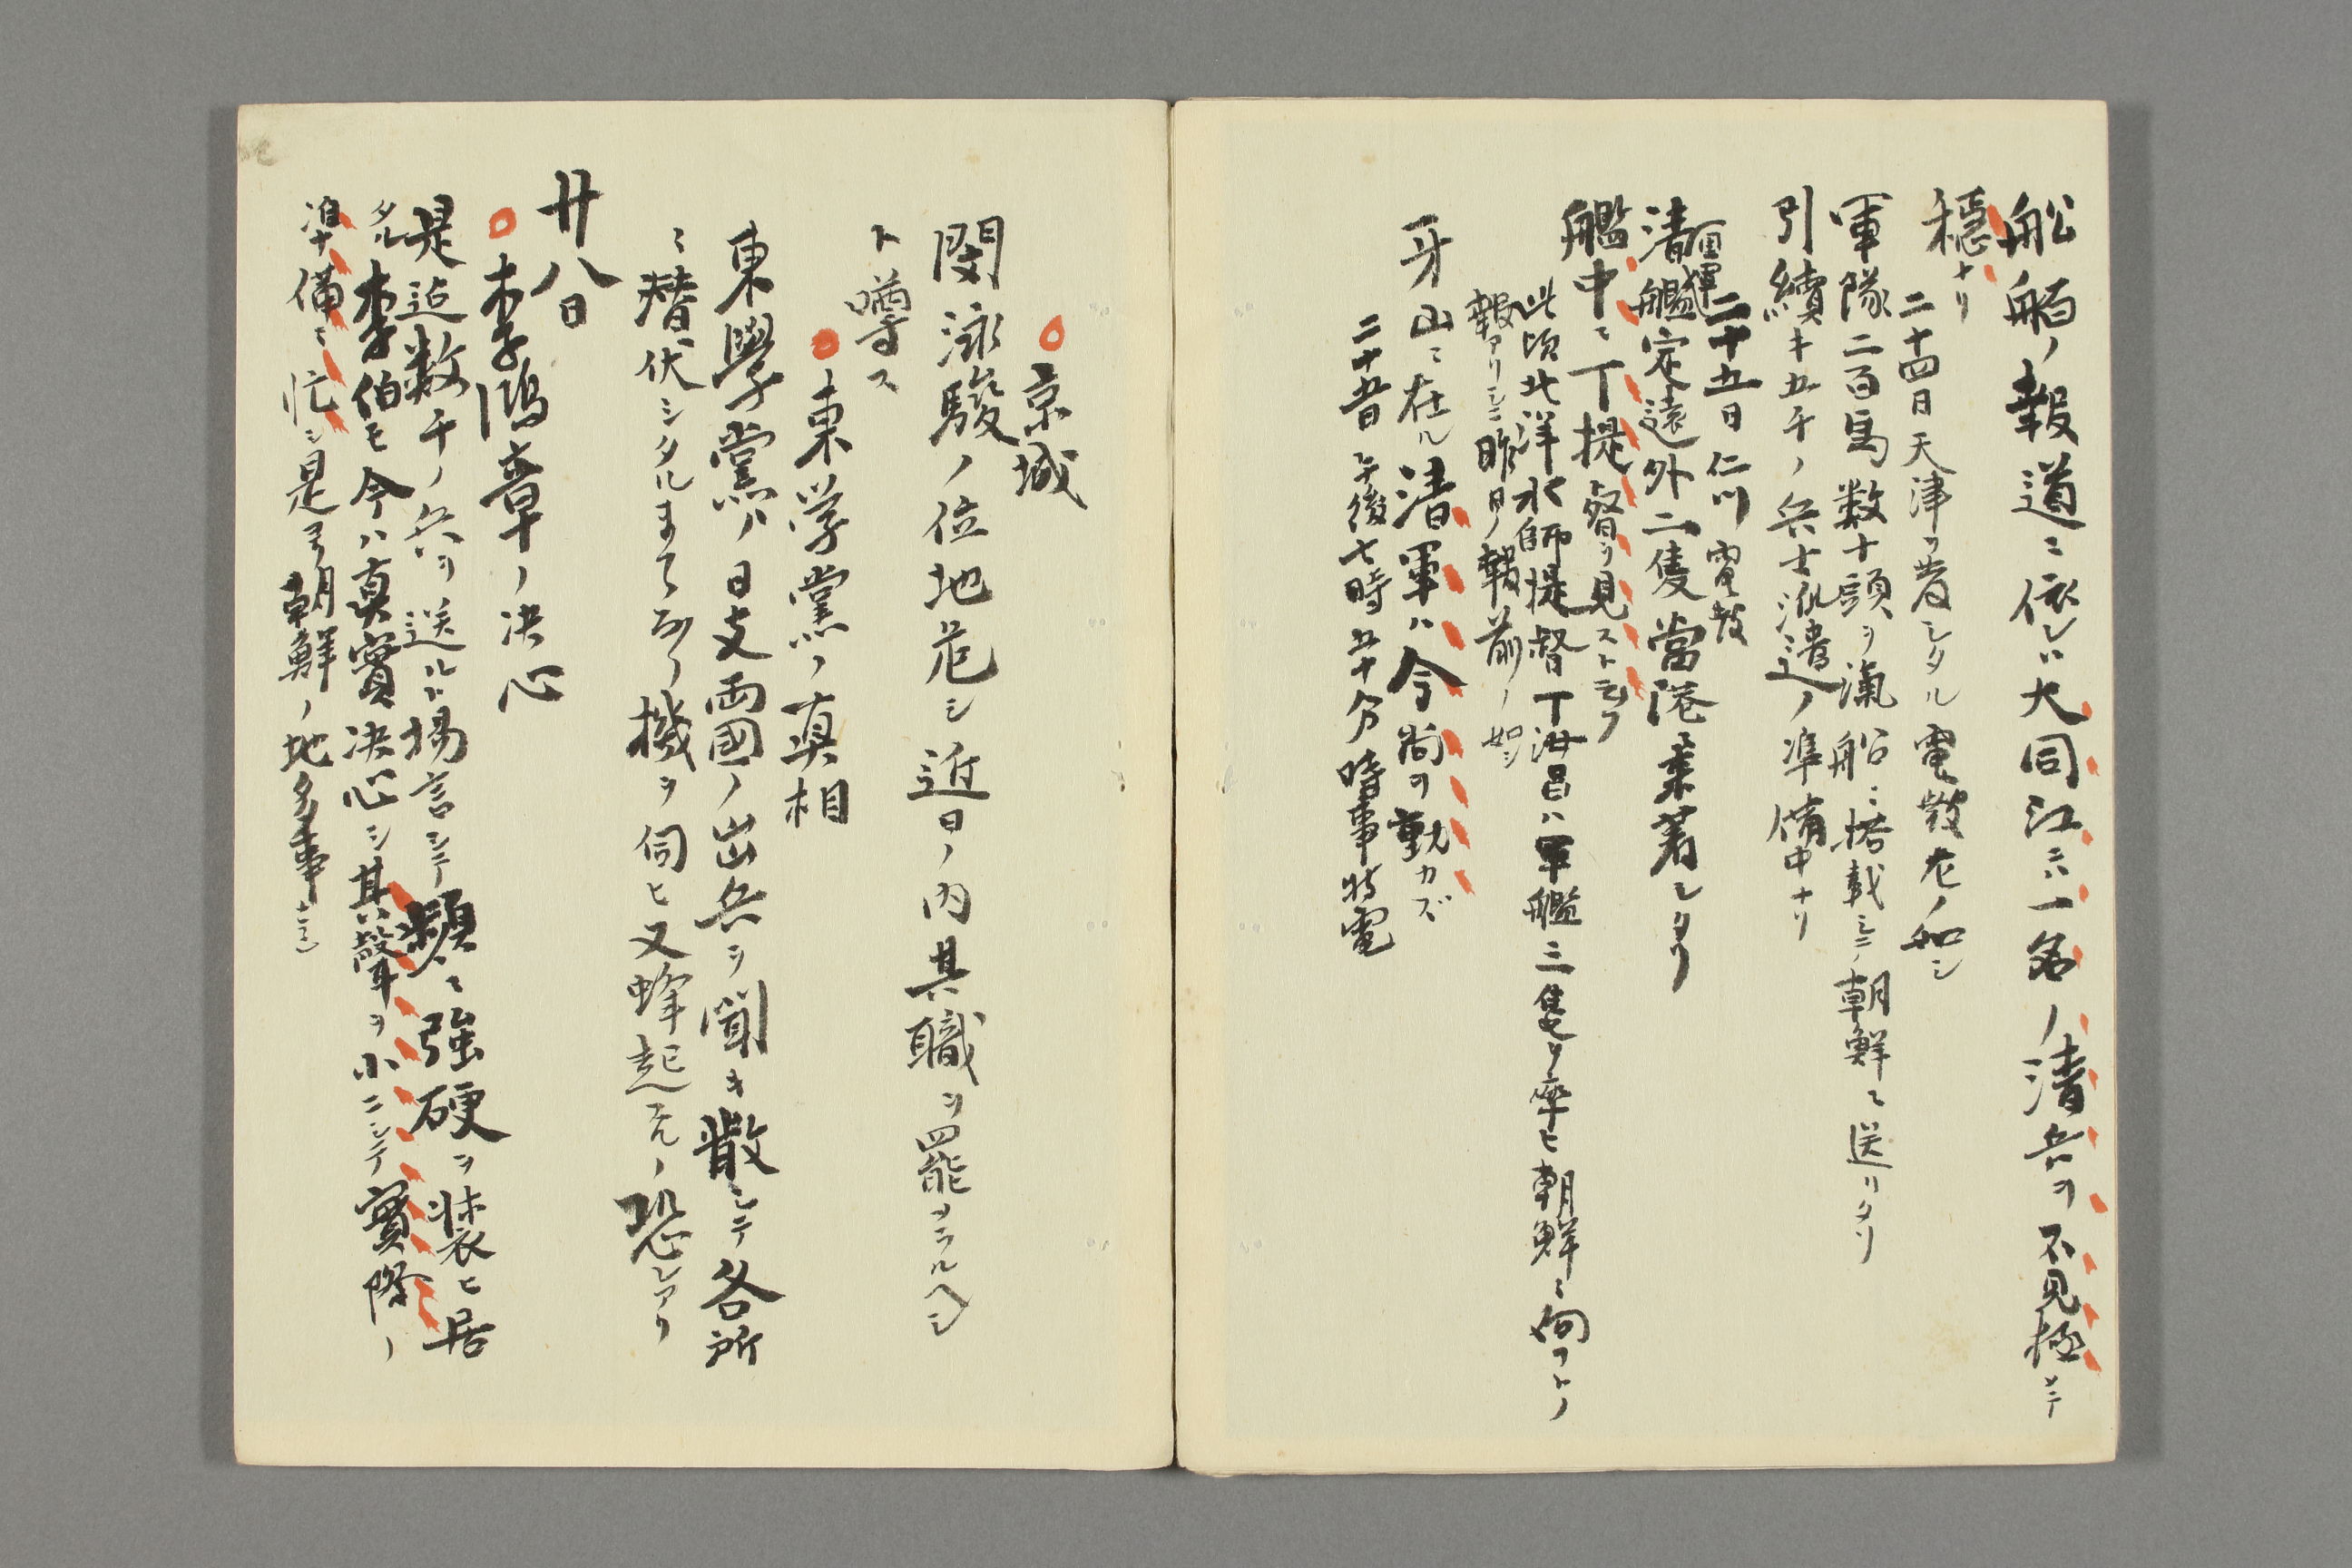 船舶ノ報道ニ依レハ大同江ニハ一名ノ清兵ヲ不見極メテ
穏ナリ
二十四日天津ヲ発シタル電報左ノ如シ
軍隊二百馬数十頭ヲ滊船ニ搭載シテ朝鮮ニ送リタリ
引續キ五千ノ兵士派遣ノ準備中ナリ
二十五日仁川電報
清軍艦定遠外二隻當港ヘ来着シタリ
艦中ニ丁提督ヲ見ストニ云フ
此頃北洋水師提督丁汝昌ハ軍艦三隻ヲ率ヒ朝鮮ニ向フトノ
報アリシニ昨日ノ報前ノ如シ
牙山ニ在ル清軍ハ今尚ヲ動カズ
二十五日午後七時五十分時事特電
○京城
閔泳駿ノ位地危シ近日ノ内其職ヲ罷メラルヘシ
ト噂ス
○東学党ノ真相
東學党ハ日支両國ノ出兵ヲ聞キ散シテ各所
ニ潜伏シタルまてニテ機ヲ伺ヒ又蜂起スルノ恐レアリ
廿八日
○李鴻章ノ决心
是迠数千ノ兵ヲ送ルト揚言シテ頻ニ強硬ヲ装ヒ居
タル李伯モ今ハ真實决心シ其聲ヲ小ニシテ實際ノ
準備ニ忙シ是ヨリ朝鮮ノ地多事ト云